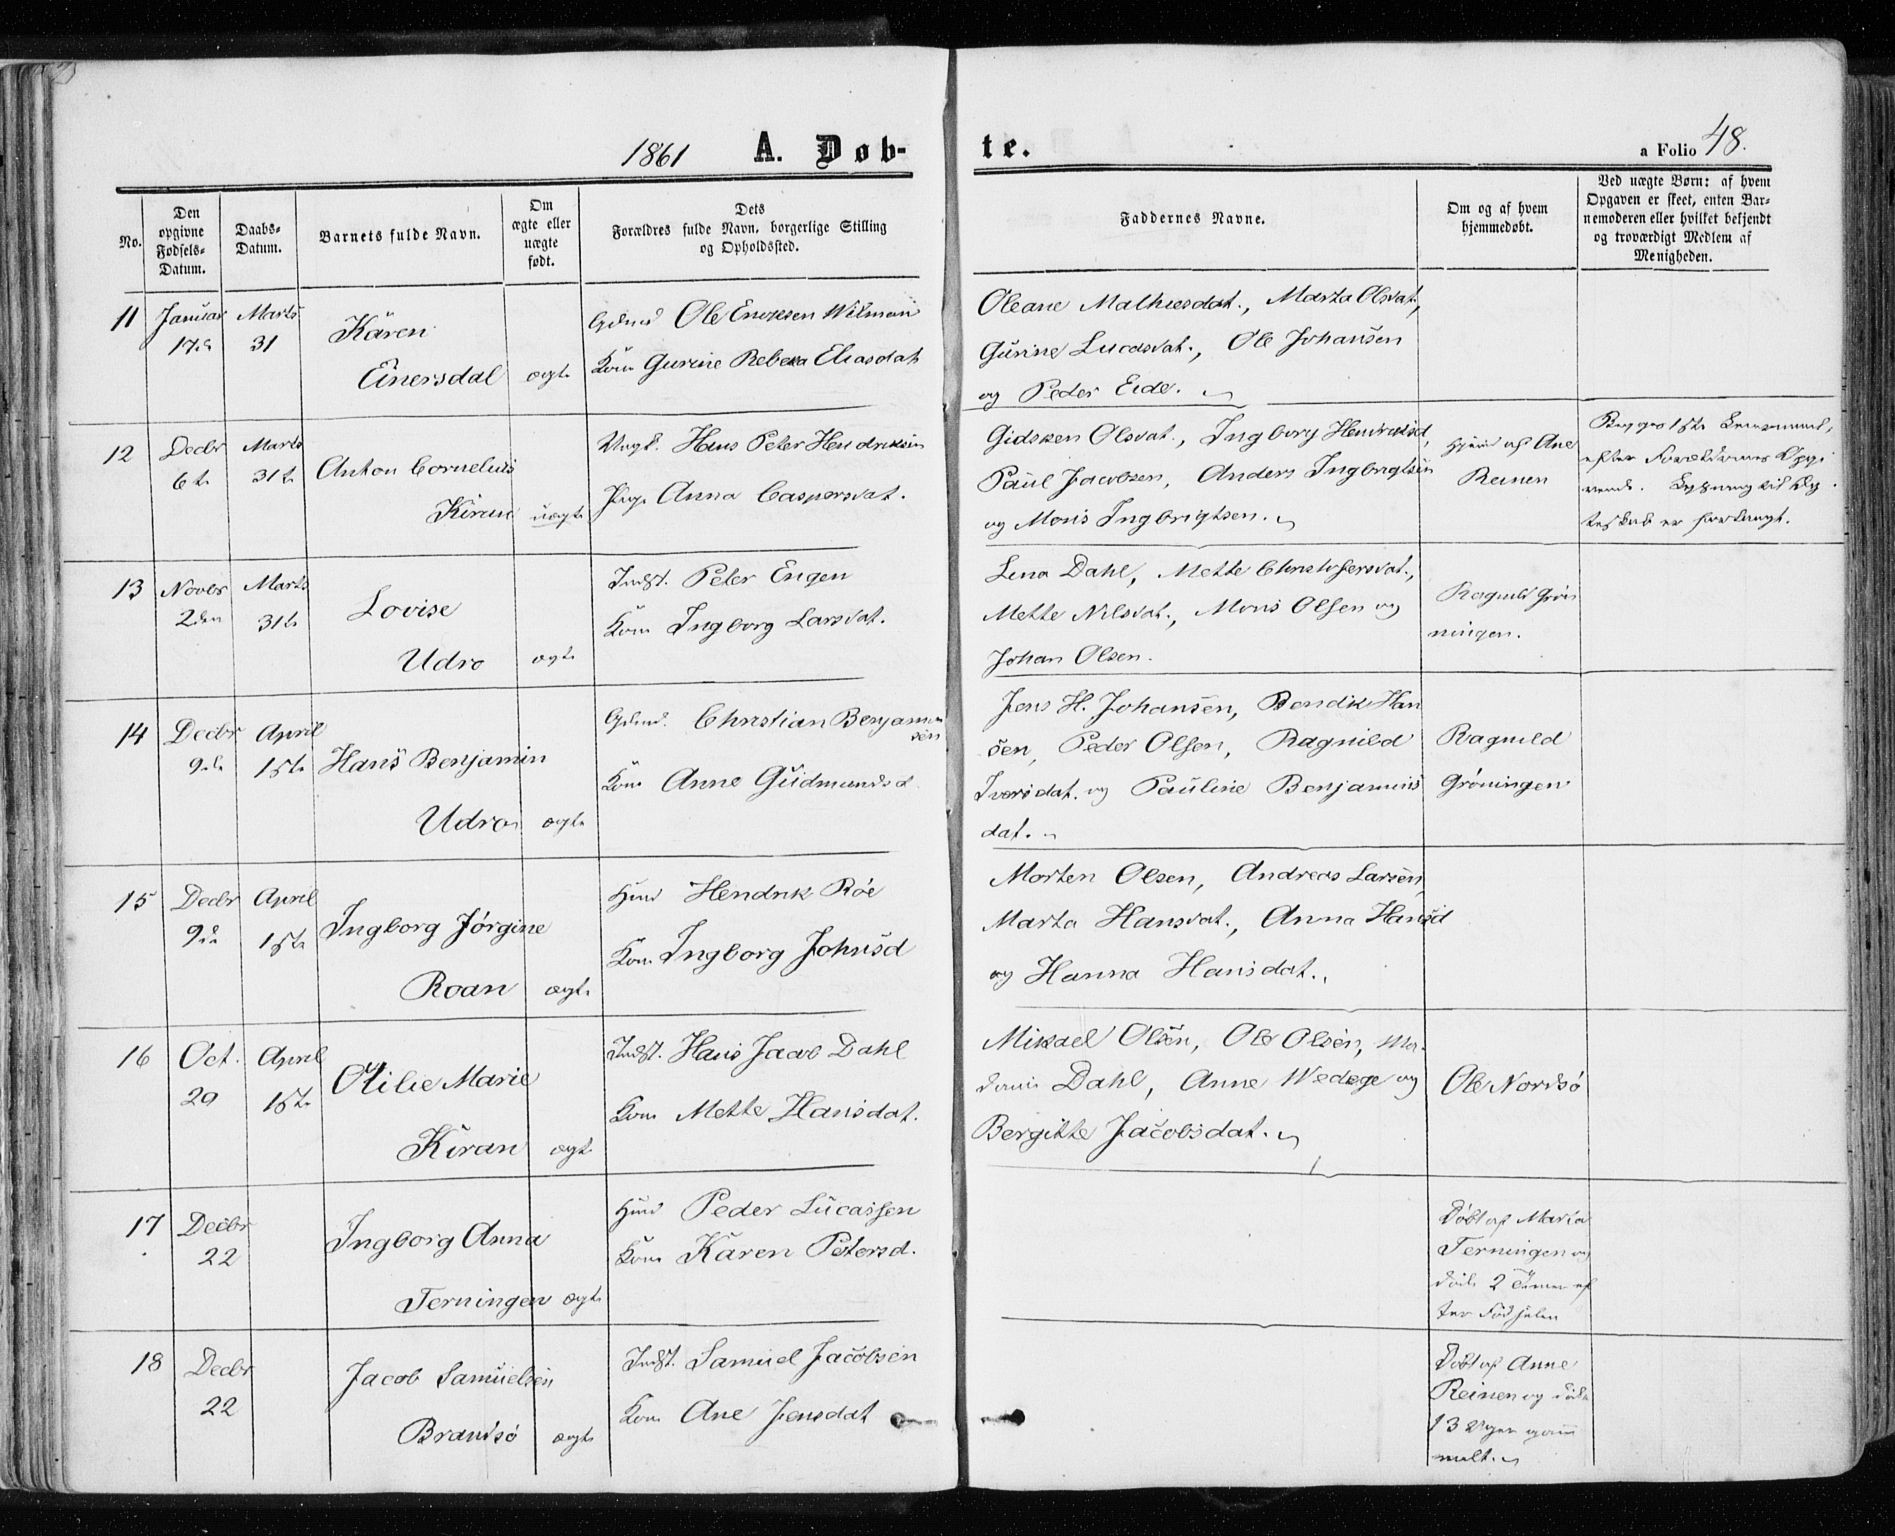 1861 A. Døb-
te.
a Folio 48.
No.
Den opgivne Fødsels-Datum.
Daabs-Datum.
Barnets fulde Navn.
Om ægte eller uægte født.
Dets Forældres fulde Navn, borgerlige Stilling og Opholdssted.
Faddernes Navne.
Om og af hvem hjemmedøbt.
Ved uægte Børn: af hvem Opgaven er skeet, enten Barnemoderen eller hvilket bekjendt og troværdigt Medlem af Menigheden.
11 Januar Marts
17de 31
Karen
Einersdal ægte
Gdmd Ole Enoksen Wilman
Kone Gurine Rebekka Eliasdat
Oleane Mathiesdat., Marta Olsdat.,
Gurine Lucasdat., Ole Johansen
og Peder Eide.
12 Decbr Marts
6te 31te
Anton Cornelius
Kiran uægte
Ungk. Hans Peter Hendriksen
Pige Anna Caspersdat.
Gidsken Olsdat., Ingborg Hendriksd,
Paul Jacobsen, Anders Ingbrigtsen
og Monis Ingbrigtsen.
Hjemd af Ane
Reinen
Begges 1ste Leiermaal,
efter Forældrenes Opgi
vende.
er forlangt.
13 Novbr Marts
2den 31te
Lovise
Udro ægte
Indst. Peter Engen
Kone Ingborg Larsdat.
Lena Dahl, Mette Christofersdat.,
Mette Nilsdat., Monis Olsen og
Johan Olsen.
Ragnild Grøn
ningen.
14 Decbr April
9de 1ste
Hans Benjamin
Udro ægte
Gdmd. Christian Benjamin
sen
Kone Anne Gudmundsd.
Jens H. Johansen, Bendik Han
sen, Peder Olsen, Ragnild
Iversdat. og Pauline Benjamins
dat.
Ragnild
Grøningen
15 Decbr April
9de 1ste
Ingborg Jørgine
Roan ægte
Hmd Hendrik Röe
Kone Ingborg Johnsd
Morten Olsen, Andreas Larsen,
Marta Hansdat., Anna Hansd
og Hanna Hansdat.
16 Oct. April
29 1ste
Otilie Marie
Kiran ægte
Indst. Hans Jacob Dahl
Kone Mette Hansdat.
Mikael Olsen, Ole Olsen,
Dahl, Anne Wedege og
Bergitte Jacobsdat.
Ole Nordsø
17 Decbr
22
Ingborg Anna
Terningen ægte
Hmd Peder Lucassen
Kone Karen Petersd.
Døbt af Maria
Terningen og
døde 2 Timer ef
ter Fødselen
18 Decbr
22
Jacob Samuelsen
Brandsø ægte
Indst. Samuel Jacobsen
Kone Ane Jensdat
Døbt af Anne
Reinen og døde
13 Uger gam
melt.